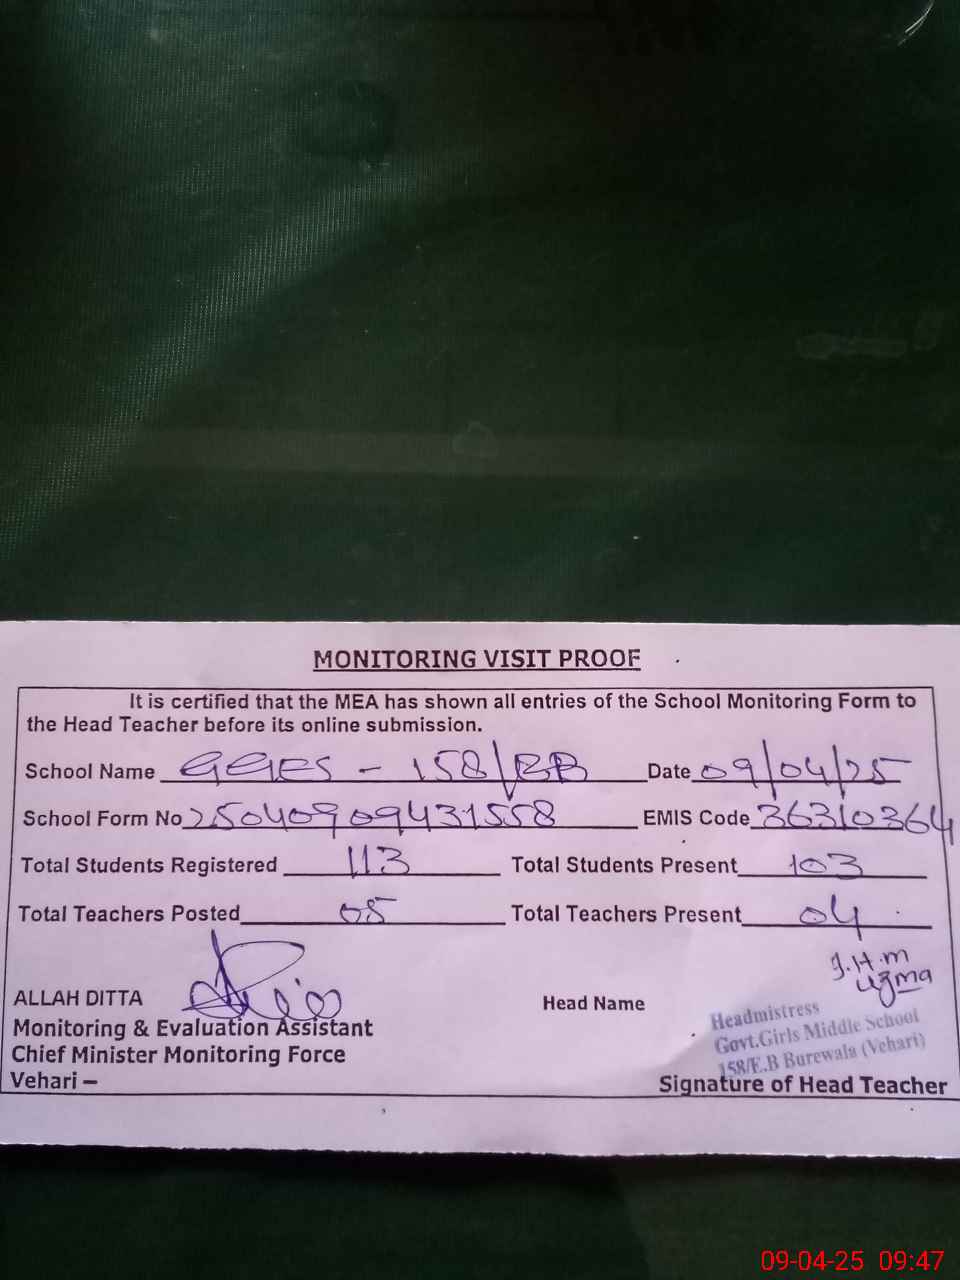 MONITORING VISIT PROOF
It is certified that the MEA has shown all entries of the School Monitoring Form to
the Head Teacher before its online submission.
School Name GGES - 158/EB Date 09/04/25
School Form No 25040909431558 EMIS Code 36310364
Total Students Registered 113 Total Students Present 103
Total Teachers Posted 05 Total Teachers Present 04
I.H.m
Uzma
ALLAH DITTA Head Name
Headmistress
Monitoring & Evaluation Assistant Govt.Girls Middle School
Chief Minister Monitoring Force 158/E.B Burewala (Vehari)
Vehari – Signature of Head Teacher
09-04-25 09:47